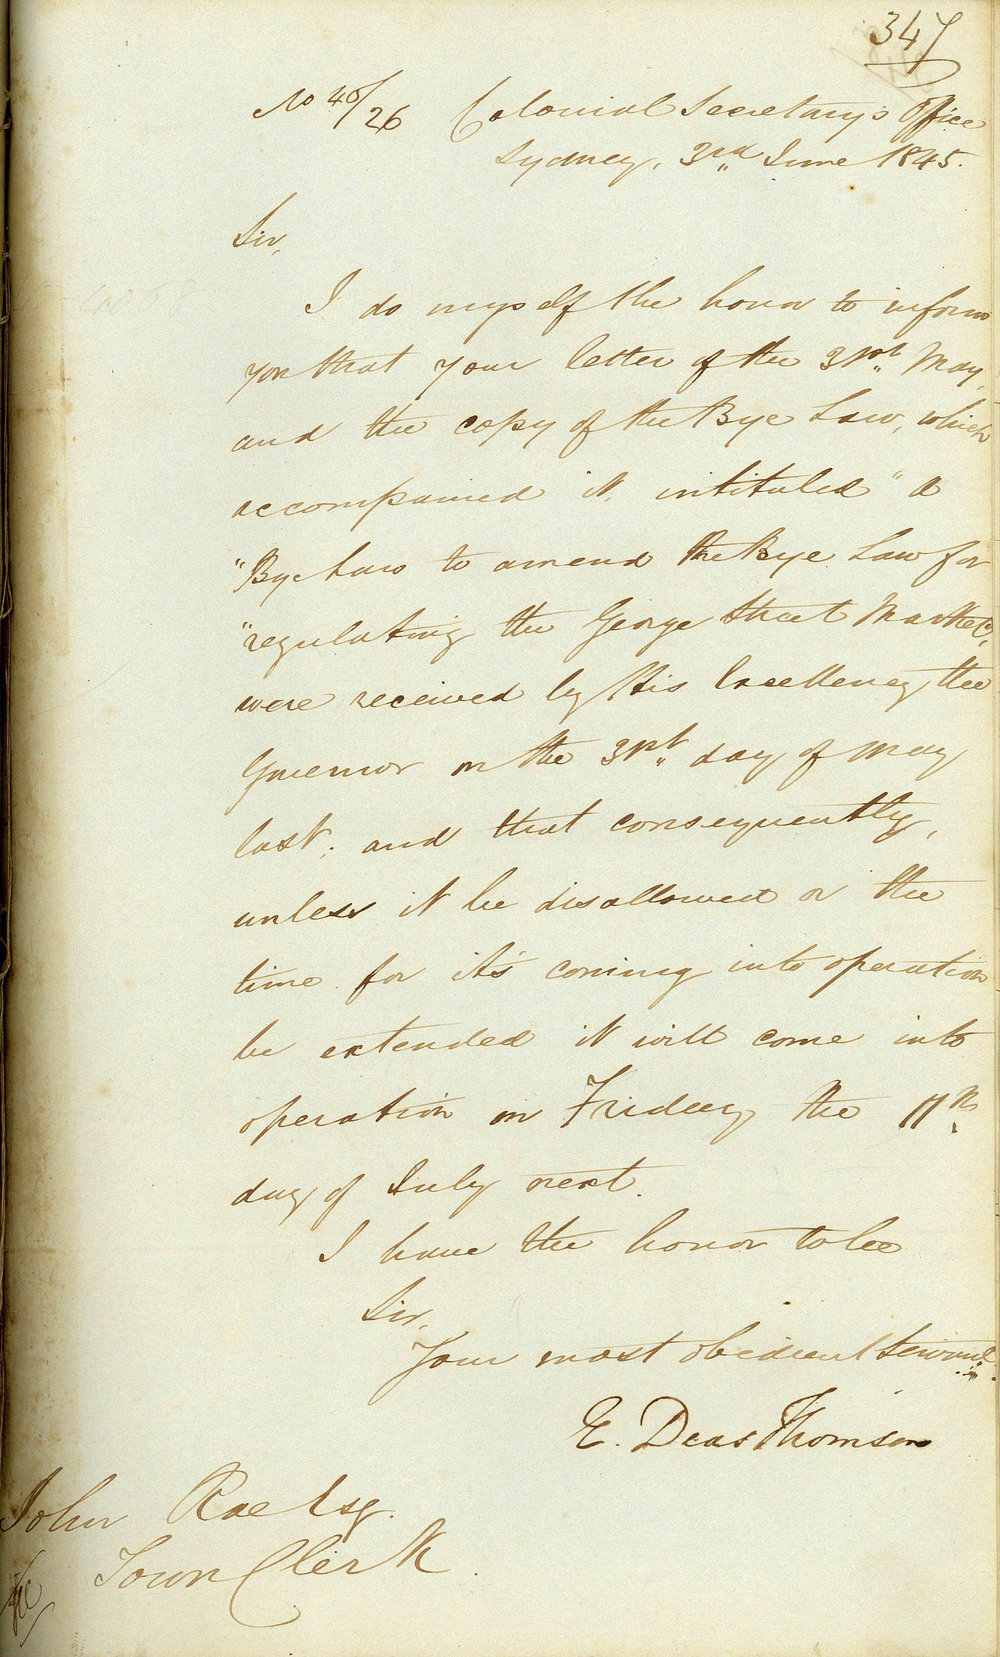 347
No 45/26 Colonial Secretary's Office
Sydney, 3rd June 1845.
Sir,
I do myself the honor to inform
you that your letter of the 31st May,
and the copy of the Bye Law, which
accompained it, intituled "A
"Bye Law to amend the Bye Law for
"regulating the George Street Market",
were received by His Excellency the
Governor on the 31st day of May
last; and that consequently,
unless it be disallowed or the
time for its coming into operation
be extended it will come into
operation on Friday the 11th
day of July next.
I have the honor to be
Sir,
Your most obedient Servant
E. Deas Thomson
John Rae Esq.
Town Clerk
&c